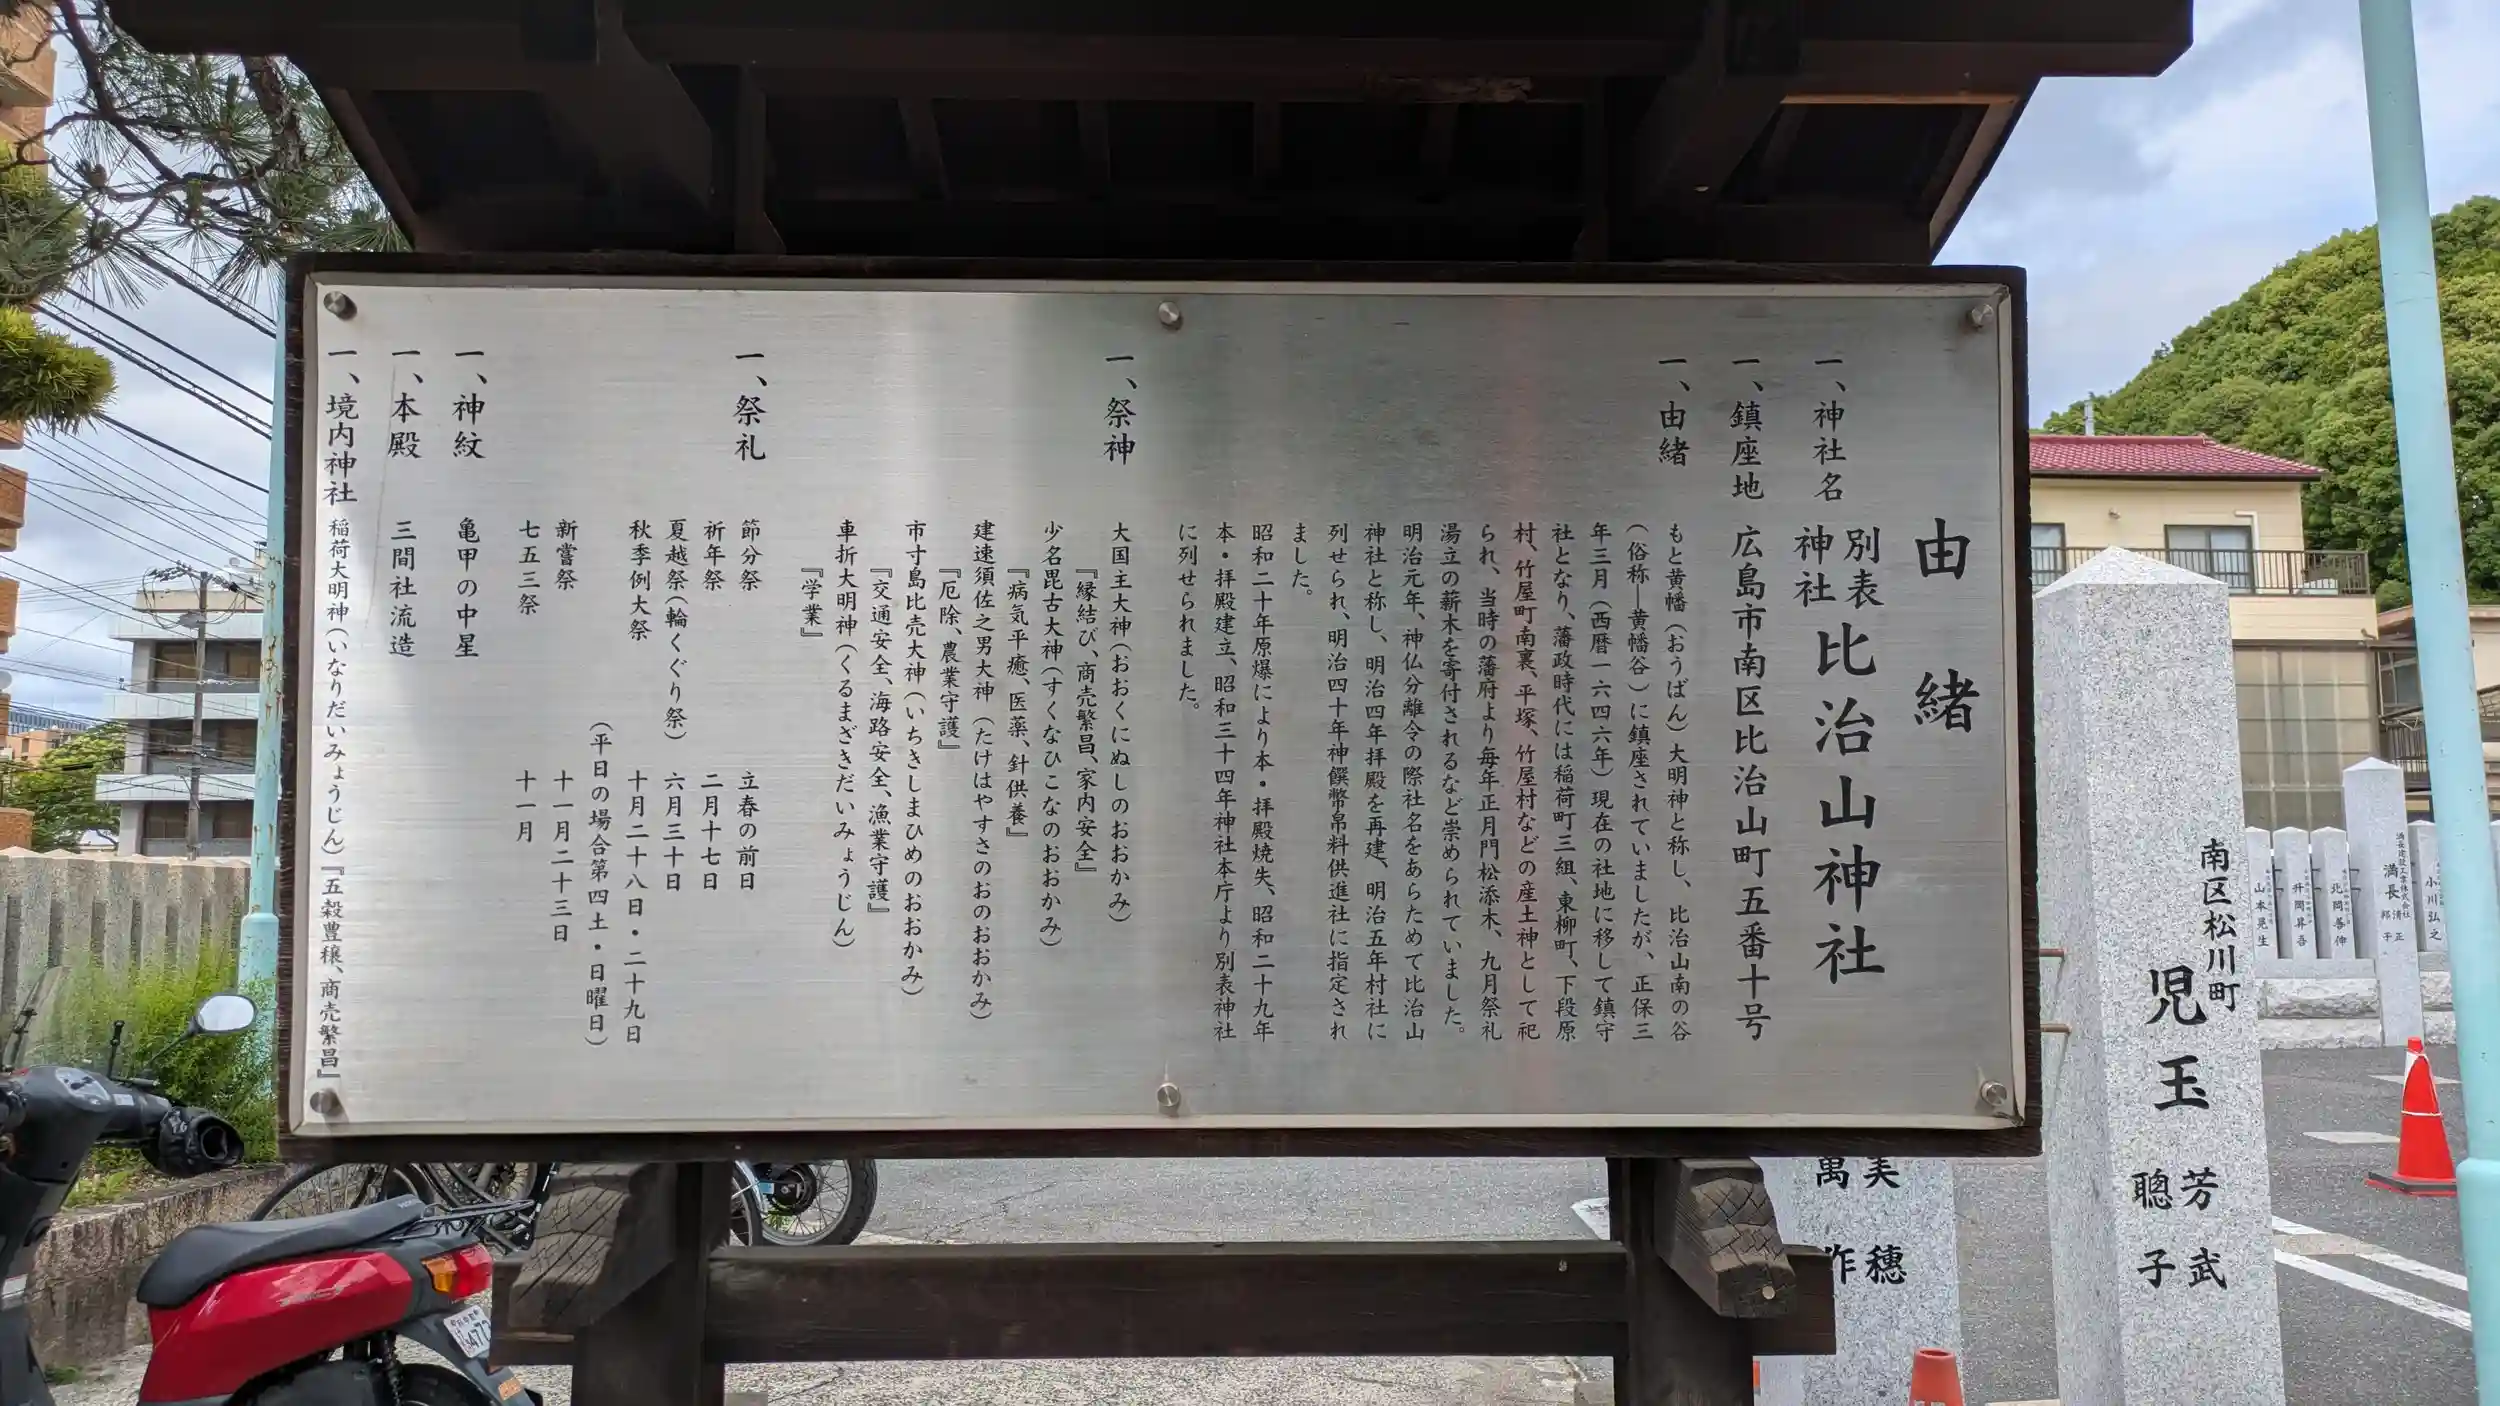 由緒
一、神社名
別表
神社
比治山神社
一、鎮座地 広島市南区比治山町五番十号
一、由緒
もと黄幡（おうばん）大明神と称し、比治山南の谷
（俗称―黄幡谷）に鎮座されていましたが、正保三
年三月（西暦一六四六年）現在の社地に移して鎮守
社となり、藩政時代には稲荷町三組、東柳町、下段原
村、竹屋町南裏、平塚、竹屋村などの産土神として祀
られ、当時の藩府より毎年正月門松添木、九月祭礼
湯立の薪木を寄付されるなど崇められていました。
明治元年、神仏分離令の際社名をあらためて比治山
神社と称し、明治四年拝殿を再建、明治五年村社に
列せられ、明治四十年神饌幣帛料供進社に指定され
ました。
昭和二十年原爆により本・拝殿焼失、昭和二十九年
本・拝殿建立、昭和三十四年神社本庁より別表神社
に列せられました。
一、祭神
大国主大神（おおくにぬしのおおかみ）
『縁結び、商売繁昌、家内安全』
少名毘古大神（すくなひこなのおおかみ）
『病気平癒、医薬、針供養』
建速須佐之男大神（たけはやすさのおのおおかみ）
『厄除、農業守護』
市寸島比売大神（いちきしまひめのおおかみ）
『交通安全、海路安全、漁業守護』
車折大明神（くるまざきだいみょうじん）
『学業』
一、祭礼
節分祭 立春の前日
祈年祭 二月十七日
夏越祭（輪くぐり祭） 六月三十日
秋季例大祭 十月二十八日・二十九日
（平日の場合第四土・日曜日）
新嘗祭 十一月二十三日
七五三祭 十一月
一、神紋 亀甲の中星
一、本殿 三間社流造
一、境内神社 稲荷大明神（いなりだいみょうじん）『五穀豊穣、商売繁昌』
南区松川町
児玉
芳武
聰子
美穂
萬作
小川弘之
満長
清正
邦子
北岡善伸
升岡昇吾
山本晃生